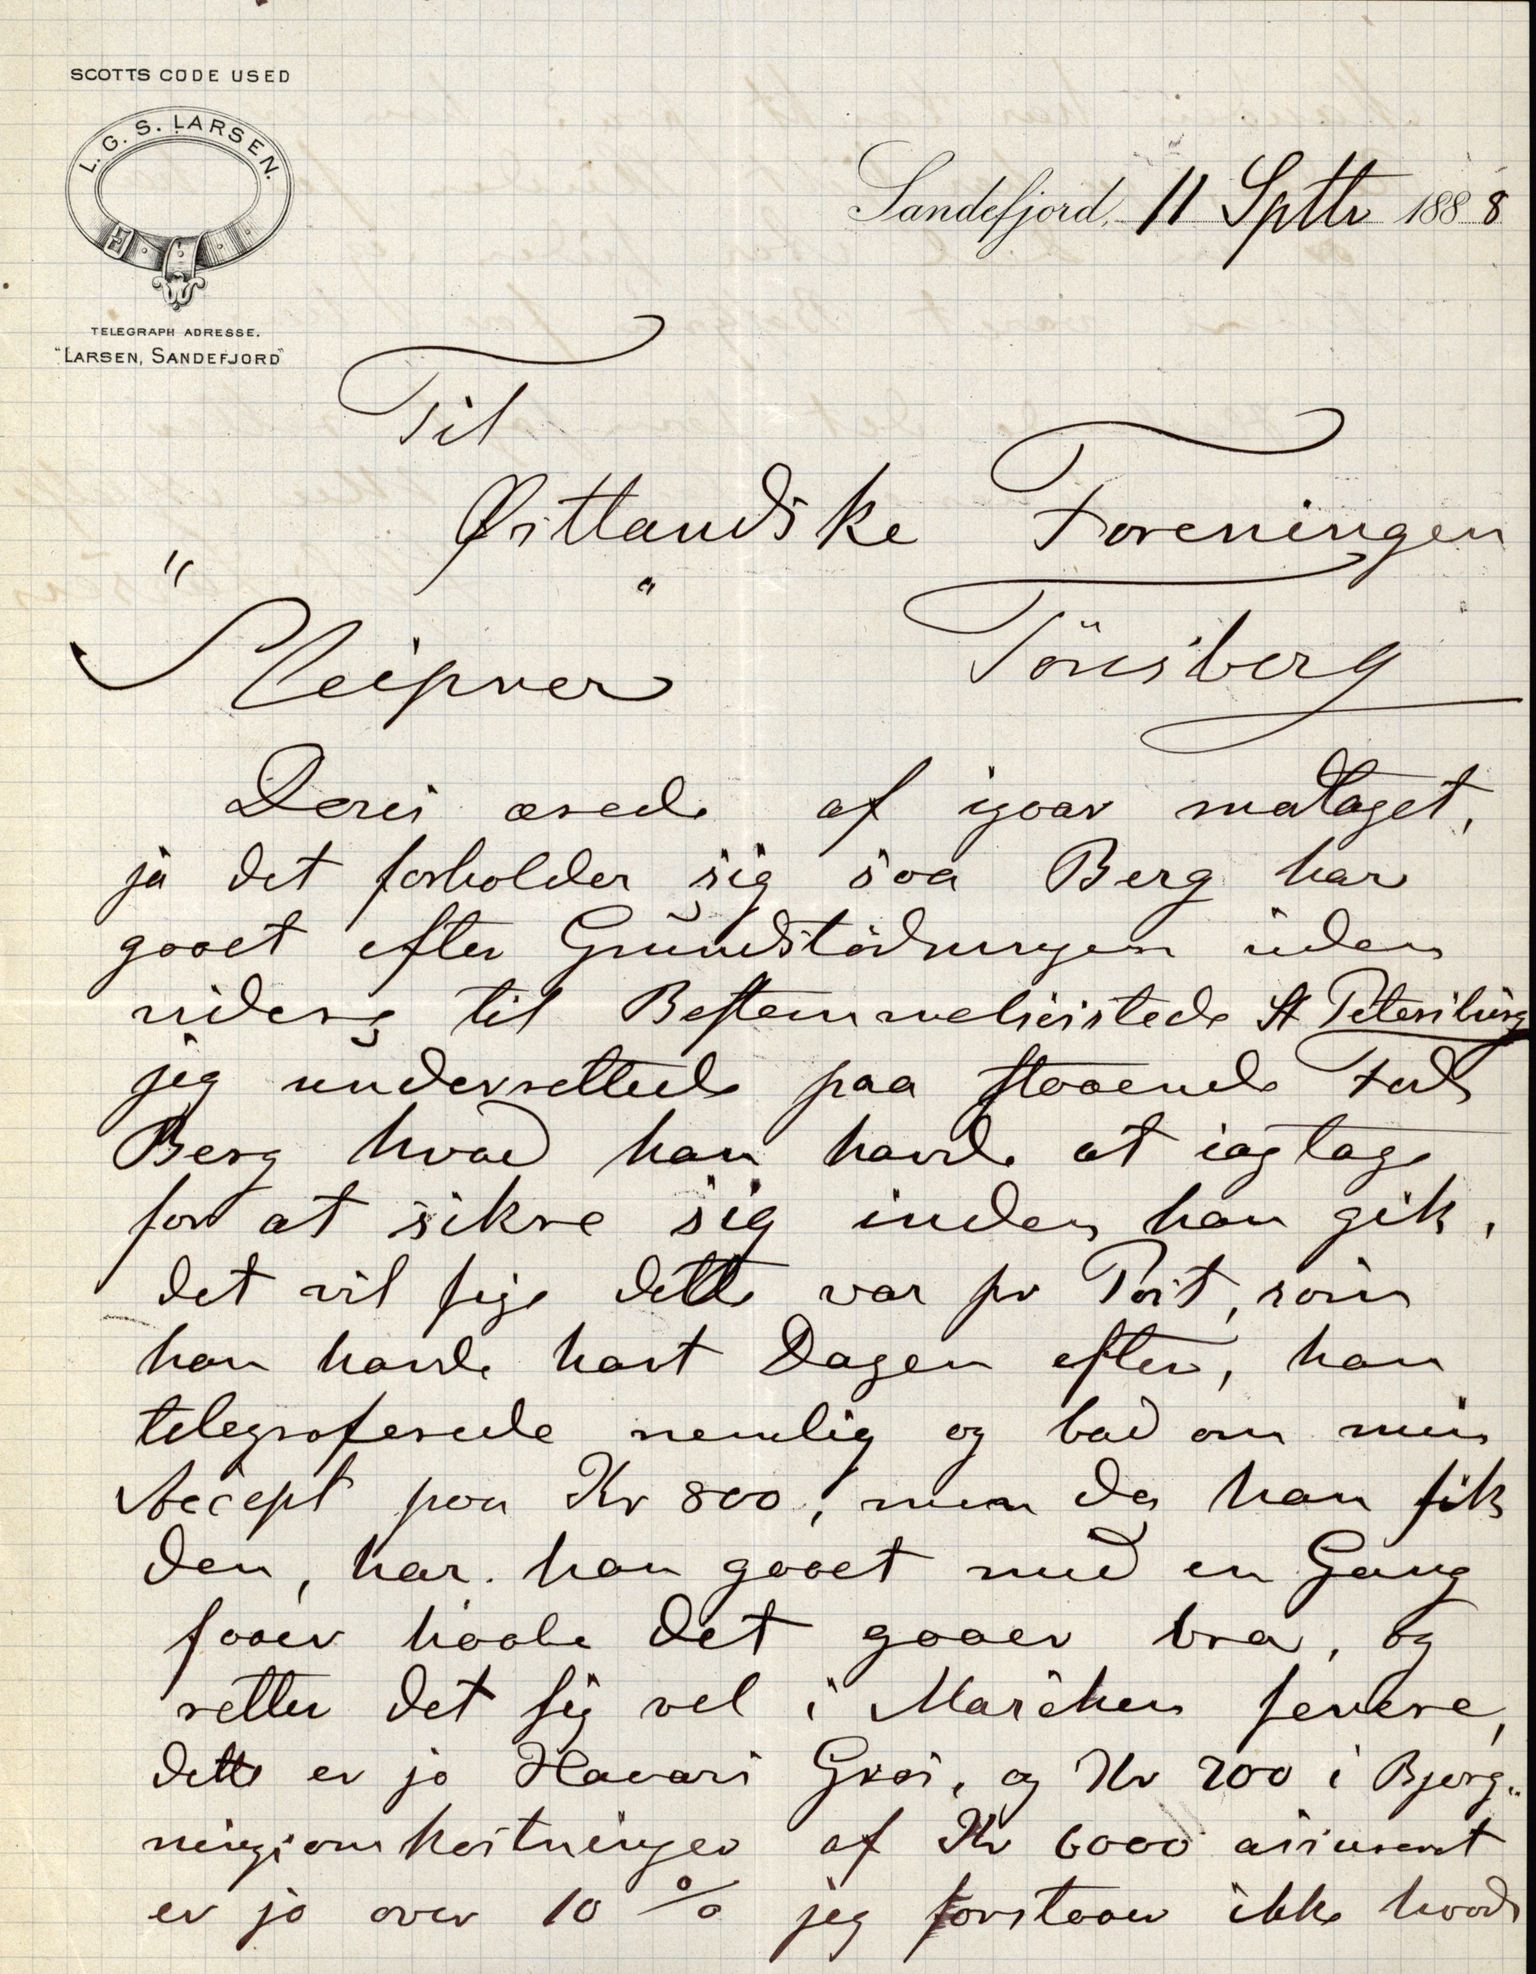 SCOTTS CODE USED
L. G. S. LARSEN.
TELEGRAPH ADRESSE.
"LARSEN, SANDEFJORD"
Sandefjord, 11 Septbr 1888
Til
Østlandske Foreningen
Tönsberg
"Sleipner"
Deres ærede af igaar modtaget,
ja det forholder sig saa Berg har
gaaet efter Grundstödningen uden
videre til Bestemmelsesstedet St Petersburg
jeg underrettede paa staaende Fod
Berg hvad han havde at iagtage
for at sikre sig inden han gik,
det vil sige dette var pr Post, som
han havde havt Dagen efter, han
telegraferede nemlig og bad om min
Accept paa Kr 800, men da han fik
den, har han gaaet med en Gang
faaer haabe det gaaer bra, og
retter det sig vel i Maschen senere,
dette er jo Havari Gros, og Kr 700 i Bjerg-
ningsomkostninger af Kr 6000 assureret
er jo over 10 % jeg forstaaer ikke hvad